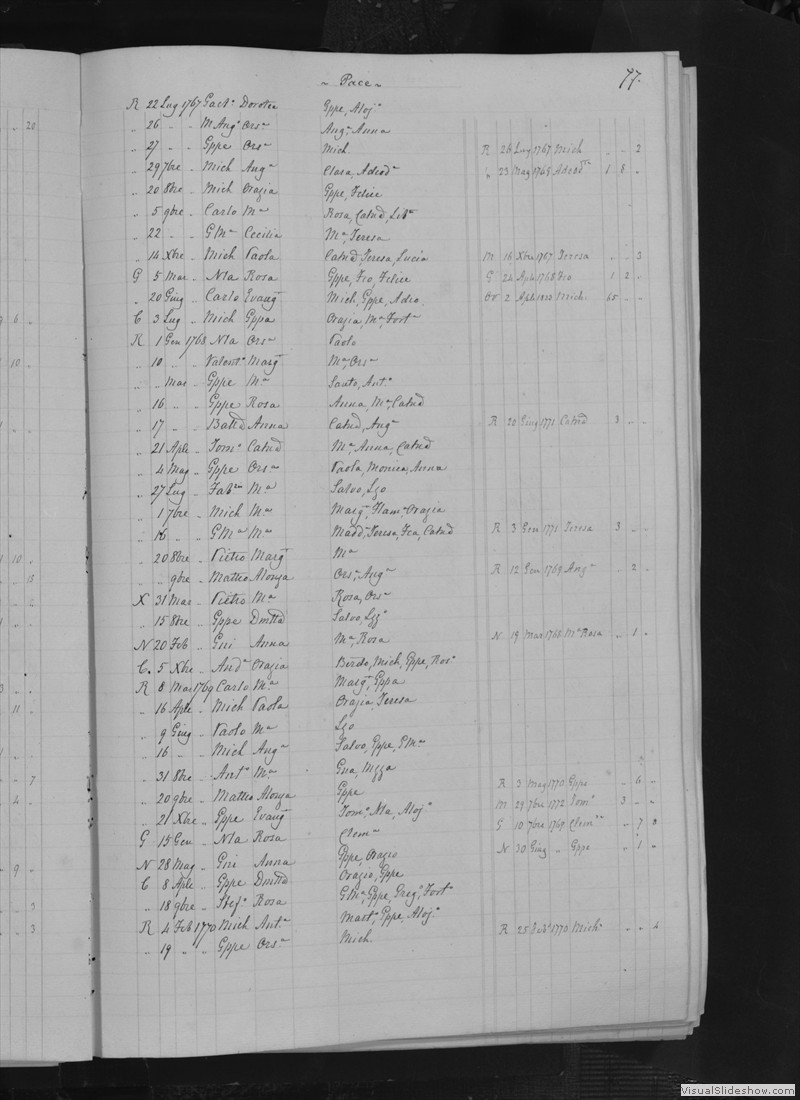 ~ Pace ~
77.
R 22 Lug 1767 Gaet.o Dorotea Gppe, Aloj.o
„ 26 „ „ M Ang.o Ors.a Ang.a Anna
„ 27 „ „ Gppe Ors.a Mich R 26 Lug 1767 Mich „ „ 2
„ 29 7bre „ Mich Ang.a Clara, Adeod.a „ 23 Mag 1768 Adeod.ta 1 8 „
„ 20 8bre „ Mich Orazia Gppe, Felice
„ 5 9bre „ Carlo M.a Rosa, Catnd, Lib.a
„ 22 „ „ GM.a Cecilia M.a, Teresa
„ 14 Xbre „ Mich Paola Catnd, Teresa, Lucia M 16 Xbre 1767 Teresa „ „ 3
G 5 Mar „ Nla Rosa Gppe, Fco, Felice G 24 Aple 1768 Fco 1 2 „
„ 20 Giug „ Carlo Evang.a Mich, Gppe, Adeo. 2 Aple 1803 Mich 65 „ „
C 3 Lug „ Mich Gppa Orazia, M.a, Fort.a
R 1 Gen 1768 Nla Ors.a Paolo
„ 10 „ „ Valent.o Marg.a M.a, Ors.a
„ „ Mar „ Gppe M.a Santo, Ant.o
„ 16 „ „ Gppe Rosa Anna, M.a, Catnd
„ 17 „ „ Battd Anna Catnd, Ang.a R 20 Giug 1771 Catnd 3 „ „
„ 21 Aple „ Tom.o Catnd M.a Anna, Catnd
„ 4 Mag „ Gppe Ors.a Paola, Monica, Anna
„ 27 Lug „ Fab.zio M.a Salvo, Lzo
„ 1 7bre „ Mich M.a Marg.a, Flam.a Orazia
„ 16 „ „ GM.a M.a Madd.a, Teresa, Fca, Catnd R 3 Gen 1771 Teresa 3 „ „
„ 20 8bre „ Pietro Marg.a M.a
„ „ 9bre „ Matteo Alonza Ors.a, Ang.a R 12 Gen 1769 Ang.a „ 2 „
X 31 Mar „ Pietro M.a Rosa, Ors.a
„ 15 8bre „ Gppe Dmttd Salvo, Lzo
N 20 Feb „ Gni Anna M.a, Rosa N 19 Mar 1768 M.a Rosa „ 1 „
C. 5 Xbre „ And.a Orazia Berdo, Mich, Gppe, Ros.o
R 8 Mar 1769 Carlo M.a Marg.a, Gppa
„ 16 Aple „ Mich Paola Orazia, Teresa
„ 9 Giug „ Paolo M.a Lzo
„ 16 „ „ Mich Ang.a Salvo, Gppe, GM.a
„ 31 8bre „ Ant.o M.a Gna, Mzza
„ 20 9bre „ Matteo Alonza Gppe R 3 Mag 1770 Gppe „ 6 „
„ 21 Xbre „ Gppe Evang.a Tom.o, Nla, Aloj.o M 29 7bre 1772 Tom.o 3 „ „
G 15 Gen „ Nla Rosa Clem.a G 10 7bre 1769 Clem.a „ 7 8
N 28 Mag „ Gni Anna Gppe, Orazio N 30 Giug „ Gppe „ 1 „
C 8 Aple „ Gppe Dmttd Orazio, Gppe
„ 18 9bre „ Stef.o Rosa GM.a, Gppe, Greg.o, Fort.o
R 4 Feb 1770 Mich Ant.a Mast.o, Gppe, Aloj.o
„ 19 „ „ Gppe Ors.a Mich. R 25 Feb.o 1770 Mich.e „ „ 4
VisualSlideshow.com